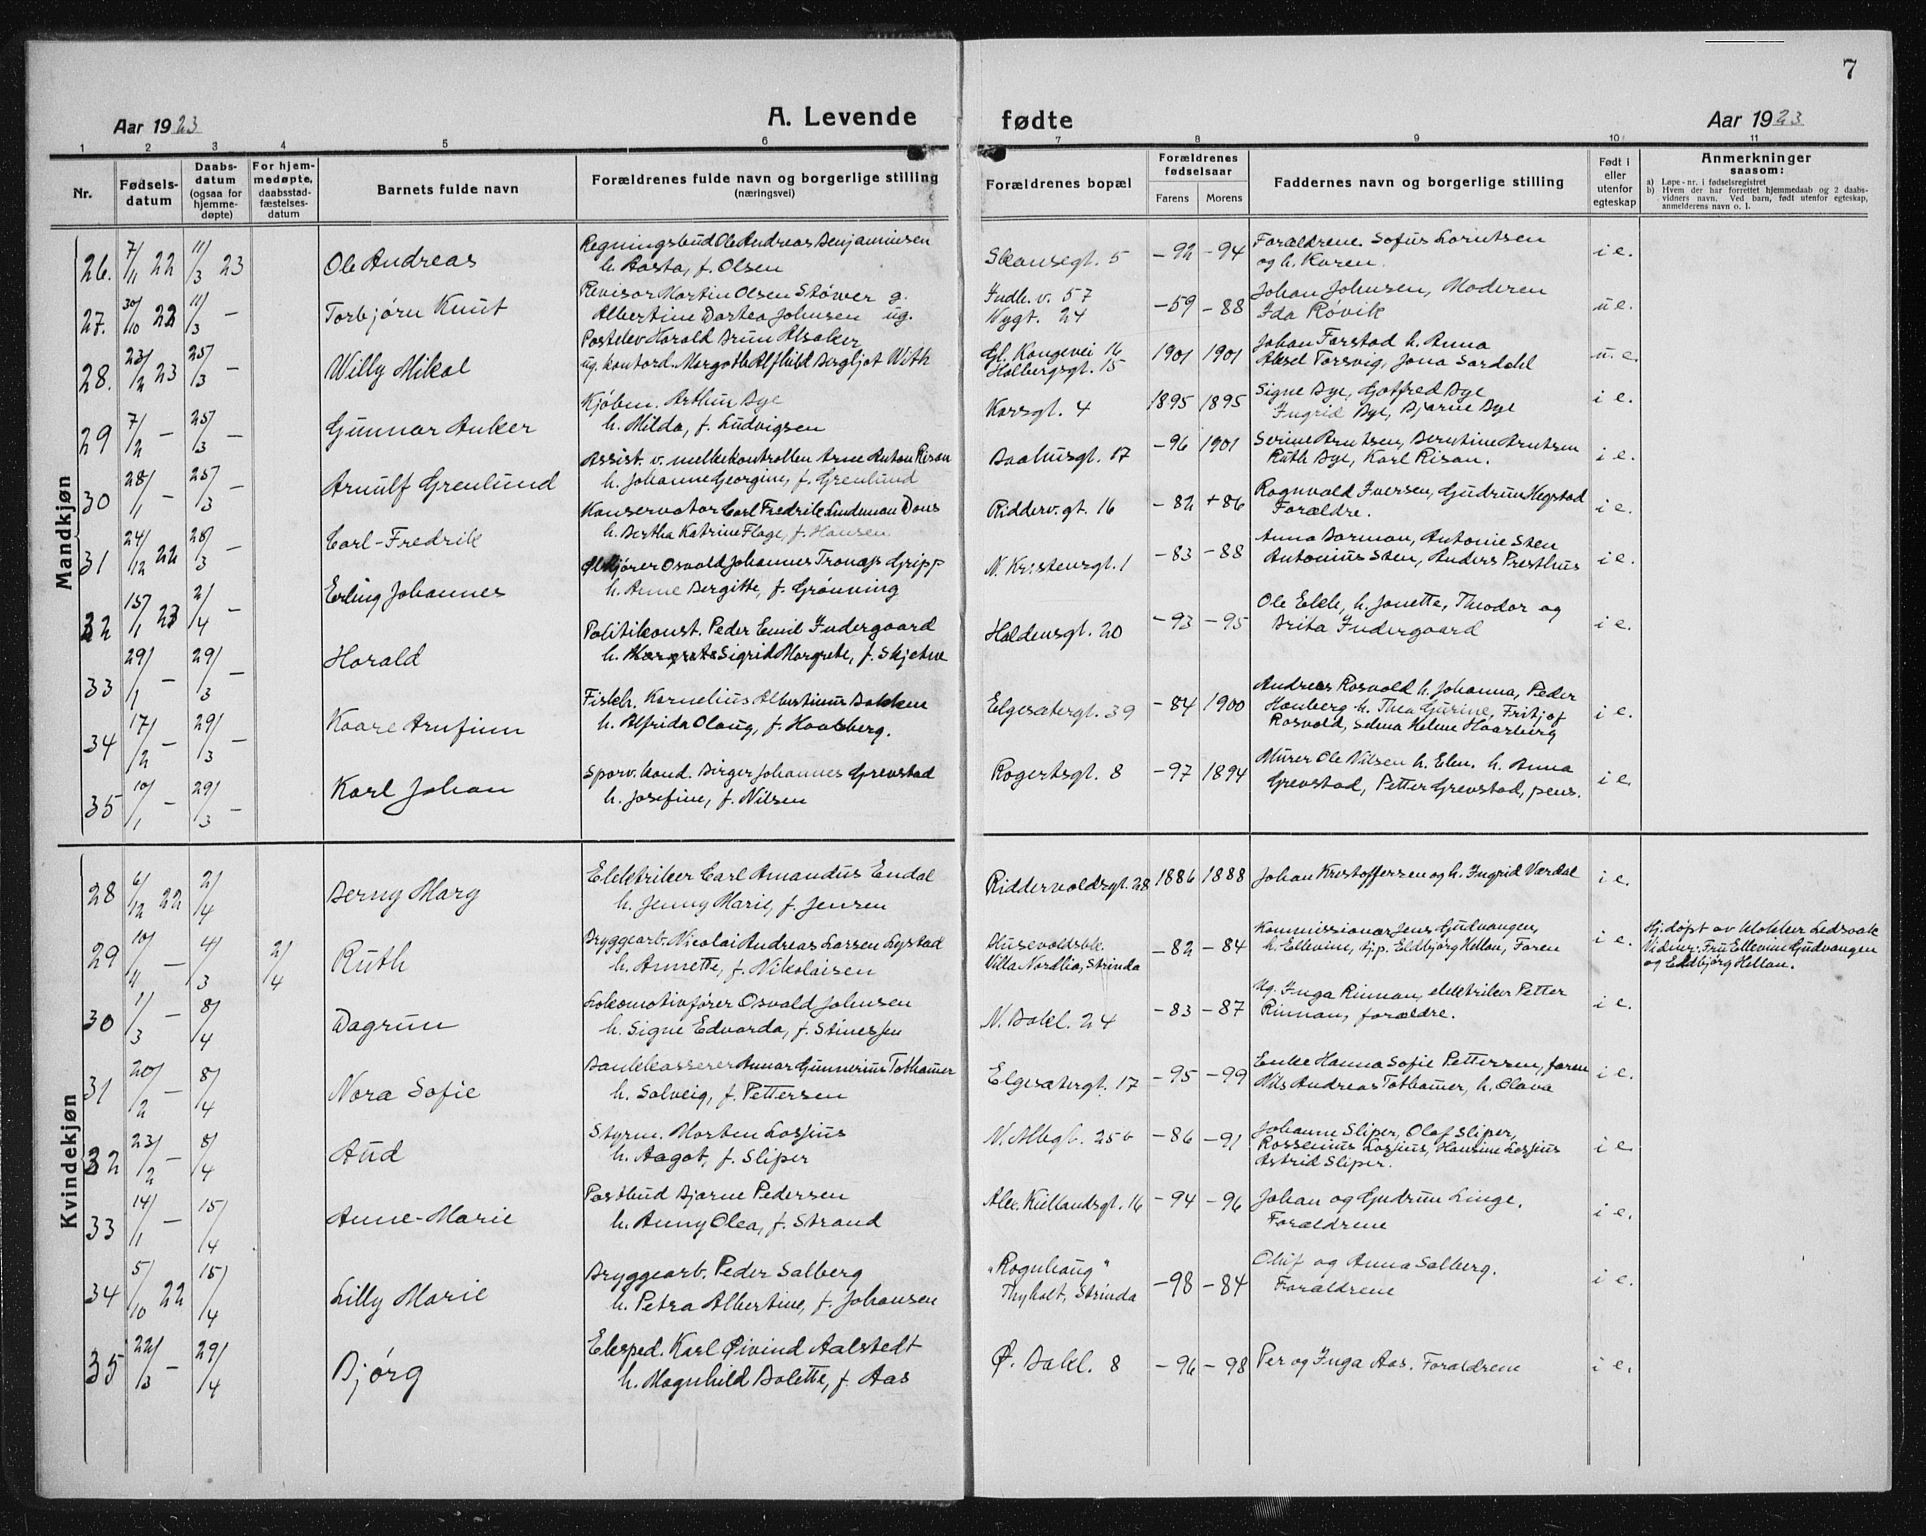 7
Aar 1923
A. Levende
fødte
Aar 1923
1 2 3 4 5 6 7 8 9 10 11
Nr.
Fødsels-
datum
Daabs-
datum
(ogsaa for
hjemme-
døpte)
For hjem-
medøpte,
daabsstad-
fæstelses-
datum
Barnets fulde navn
Forældrenes fulde navn og borgerlige stilling
(næringsvei)
Forældrenes bopæl
Forældrenes
fødselsaar
Farens Morens
Faddernes navn og borgerlige stilling
Født i
eller
utenfor
egteskap
Anmerkninger
saasom:
a) Løpe-nr. i fødselsregistret
b) Hvem der har forrettet hjemmedaab og 2 daabs-
vidners navn. Ved barn, født utenfor egteskap,
anmelderens navn o. l.
Mandkjøn
26. 7/11 22 11/3 23 Ole Andreas
Regningsbud Ole Andreas Benjaminsen
h. Aasta, f. Olsen
Skansegt. 5 -92 -94
Forældrene. Sofus Lorntsen
og h. Karen.
i e.
27. 30/10 22 11/3 - Torbjørn Knut
Revisor Martin Olsen Støwer g.
Albertine Dortea Johnsen ug.
Indh. v. 57
Nygt. 24
-59 -88
Johan Johnsen, Moderen
Ida Røvik
u e.
28. 23/2 23 25/3 - Willy Mikal
Postelev Harald Brun Alsaker
ug. kontord. Margoth Alfhild Bergljot With
Gl. Kongevei 16
Holbergsgt. 15
1901 1901
Johan Forstad h. Anna
Aksel Torsvig, Jona Sardahl
u. e.
29 7/2 - 25/3 - Gunnar Anker
Kjøbm. Arthur Bye
h. Milda, f. Ludvigsen
Korsgt. 4 1895 1895
Signe Bye, Gotfred Bye
Ingrid Bye, Bjarne Bye
i e.
30 28/1 - 25/3 - Arnulf Grenlund
Assist. v. melkekontrollen Arne Anton Risan
h. Johanne Georgine, f. Grenlund
Baahusgt. 17 -96 1901
Serine Arntsen, Berntine Arntsen
Ruth Bye, Karl Risan.
i e.
31 24/12 22 28/3 - Carl-Fredrik
Konservator Carl Fredrik Lindeman Dons
h. Bertha Katrine Flage, f. Hansen
Ridderv.gt. 16 -82 +86
Rognvald Iversen, Gudrun Hegstad
Forældre.
i e.
32 15/1 23 2/4 - Erling Johannes
Ølkjører Osvald Johannes Tronæs Gripp
h. Anne Bergitte, f. Grønning
N. Kristensgt. 1 -83 -88
Anna Dorman, Antonie Sten
Antonius Sten, Anders Presthus
i e.
33 29/1 - 29/3 - Harald
Politikonst. Peder Emil Indergaard
h. Sigrid Margrete, f. Skjetne
Haldensgt. 20 -93 -95
Ole Ekle, h. Jonette, Theodor og
Brita Indergaard
i e.
34 17/2 - 29/3 - Kaare Arnfinn
Fiskh. Kornelius Albertinus Bakken
h. Alfrida Olaug, f. Haalberg.
Elgesætergt. 39 -84 1900
Andreas Rosvold h. Johanna, Peder
Hauberg h. Thea Gurine, Fritjof
Rosvold, Selma Helene Haarberg
i e.
35 10/1 - 29/3 - Karl Johan
Sporv. kond. Birger Johannes Grevstad
h. Josefine, f. Nilsen
Rogertsgt. 8 -97 1894
Murer Ole Nilsen h. Elen. h. Anna
Grevstad, Petter Grevstad, pens.
i e.
Kvindekjøn
28 6/12 22 2/4 Berny Mary
Elektriker Carl Amandus Endal
h. Jenny Marie, f. Jensen
Riddervoldsgt. 28 1886 1888
Johan Kristoffersen og h. Ingrid Værdal
i e.
29 10/11 - 4/3 2/4 Ruth
Bryggearb. Nicolai Andreas Larsen Lystad
h. Annette, f. Nikolaisen
Husevoldsbk.
Villa Nordlia, Strinda
-82 -84
Kommissionær Jens Gjulvangen,
h. Ellevine, tjp. Eldbjørg Hellan, Faren
i e.
Hj.døpt av klokker Ledsaak
Vidner: Fru Ellevine Gjulvangen
og Eldbjørg Hellan.
30 1/3 - 8/4 Dagrun
Lokomotivfører Osvald Johnsen
h. Signe Edvarda, f. Stinessen
N. Bakl. 24 -83 -87
Ug. Inga Rinnan, elektriker Petter
Rinnan, forældre.
i e.
31 20/2 - 8/4 Nora Sofie
Bankkasserer Annar Gunnerius Tothamer
h. Solveig, f. Pettersen
Elgesætergt. 17 -95 -99
Enke Hanna Sofie Pettersen, faren
Nils Andreas Tothamer, h. Olava
i e.
32 23/2 - 8/4 Aud
Styrm. Morten Losjius
h. Aagot, f. Sliper
N. Albgt. 25 b -86 -91
Johanne Sliper, Olaf Sliper,
Rossenius Losjius, Hansine Losjius
Astrid Sliper.
i e.
33 14/1 - 15/4 Anne-Marie
Postbud Bjarne Pedersen
h. Anny Olea, f. Strand
Alex. Kiellandsgt. 16 -94 -96
Johan og Gudrun Linge.
Forældrene
i e.
34 5/10 22 15/4 Lilly Marie
Bryggearb. Peder Salberg
h. Petra Albertine, f. Johansen
"Rognhaug"
Thyholt, Strinda
-98 -84
Oluf og Anna Salberg.
Forældrene
i e.
35 22/3 - 29/4 Bjørg
Eksped. Karl Øivind Aalstedt
h. Magnhild Bolette, f. Aas
Ø. Bakl. 8 -96 -98
Per og Inga Aas. Forældrene
i e.